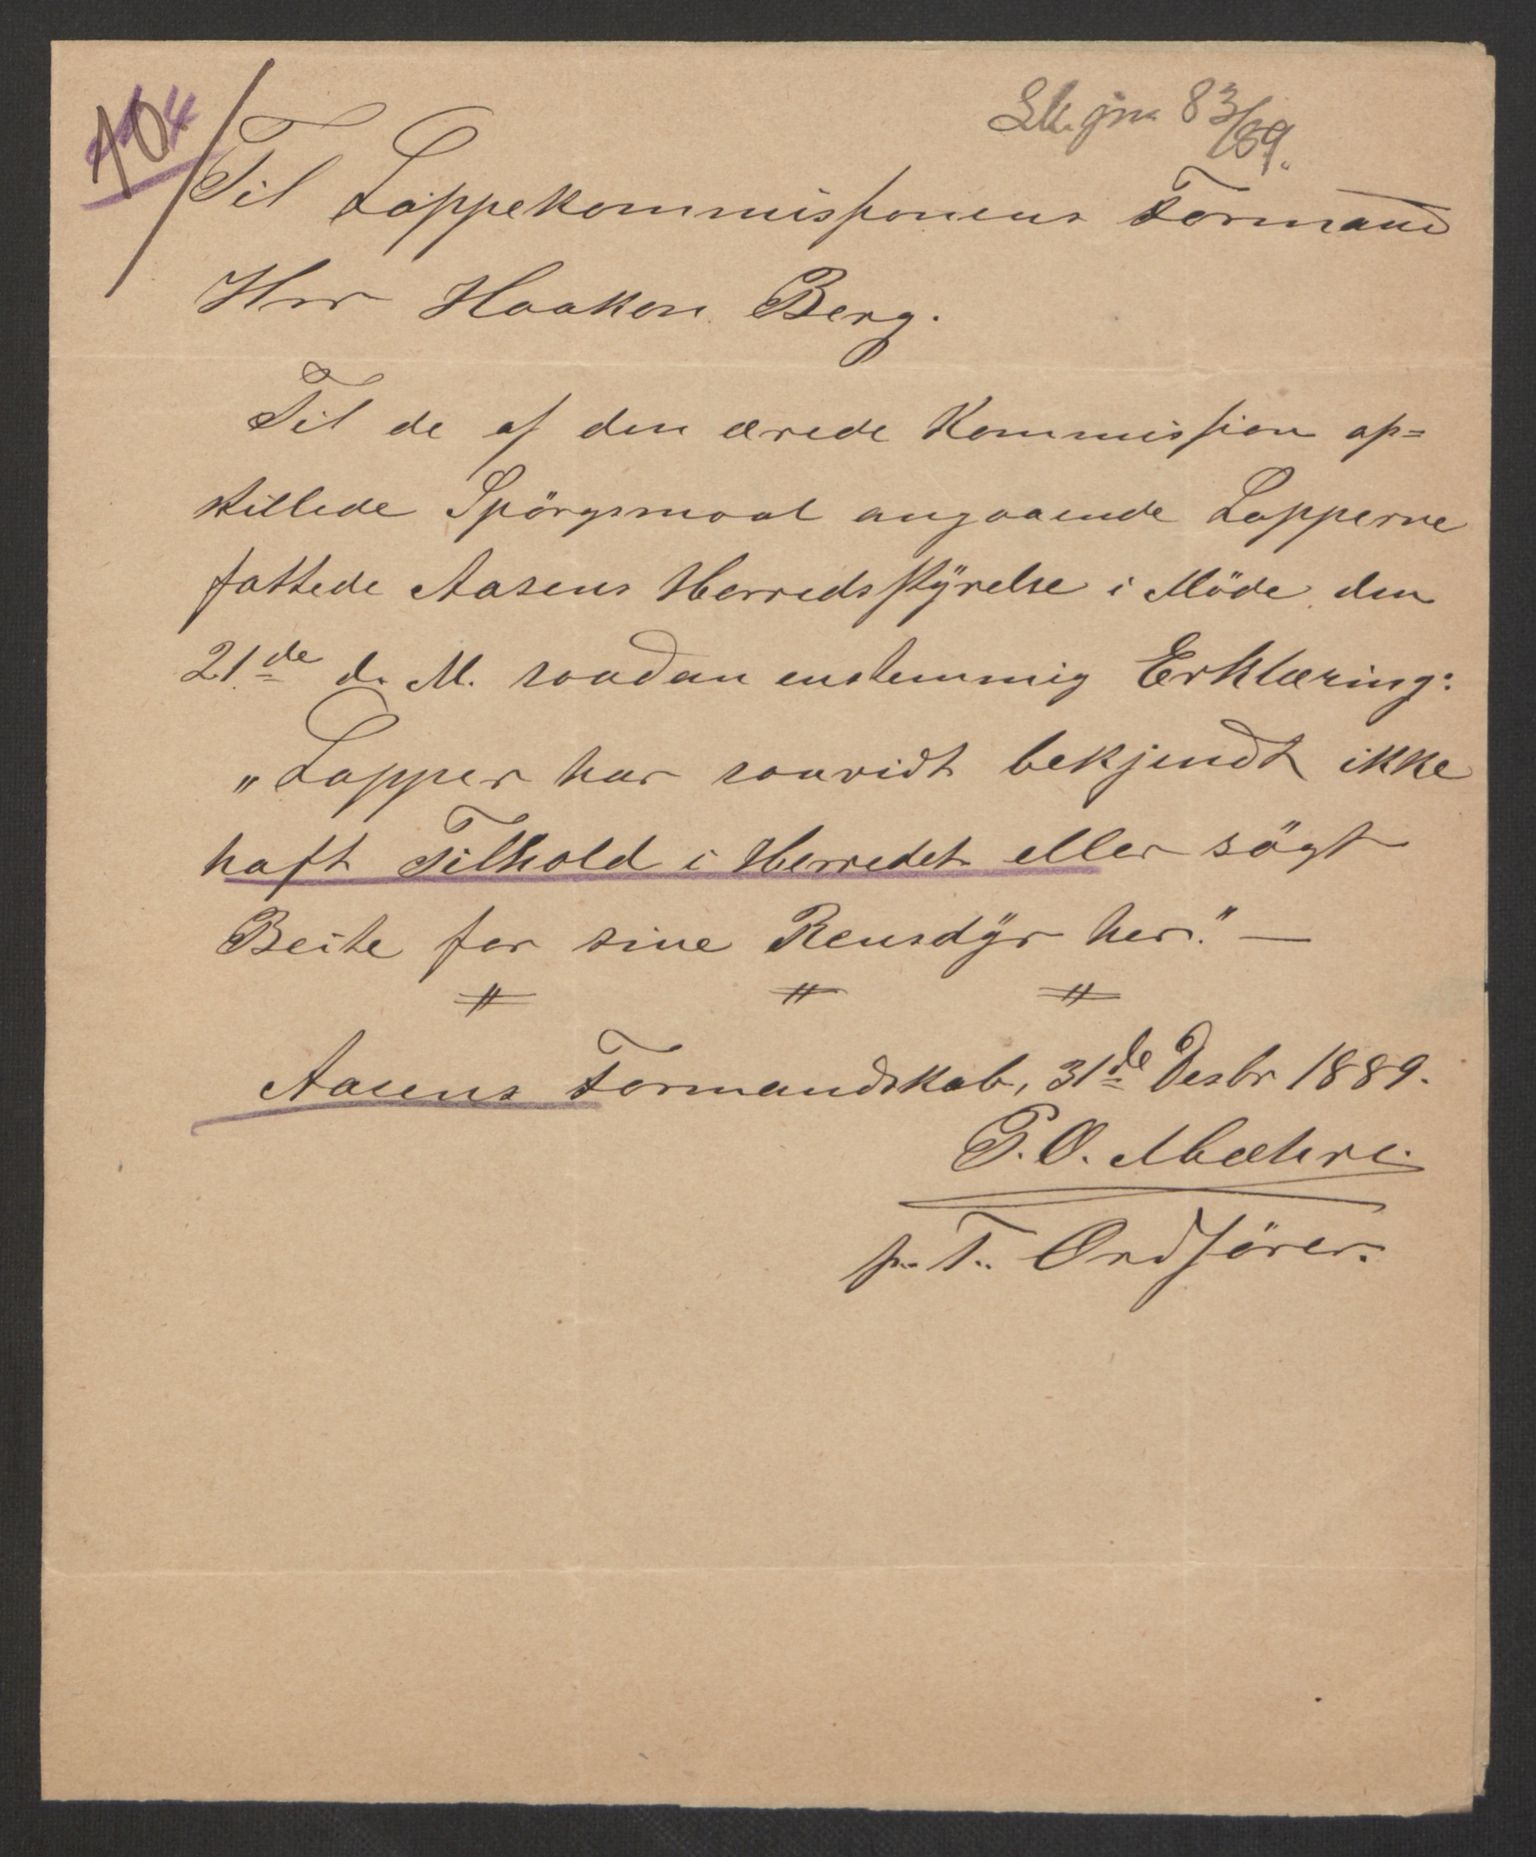 Lk. jnr 83/89.
Til Lappekommissionens Formand
Herr Haakon Berg.
Til de af den ærede Kommission op=
stillede Spörgsmaal angaaende Lapperne
fattede Aasens Herredsstÿrelse i Möde den
21de d. M. saadan enstemmig Erklæring:
„Lapper har saavidt bekjendt ikke
haft Tilhold i Herredet eller sögt
Beite for sine Rensdÿr her." —
Aasens Formandskab, 31de Desbr 1889.
P. O. Mæhre.
p. T. Ordförer.